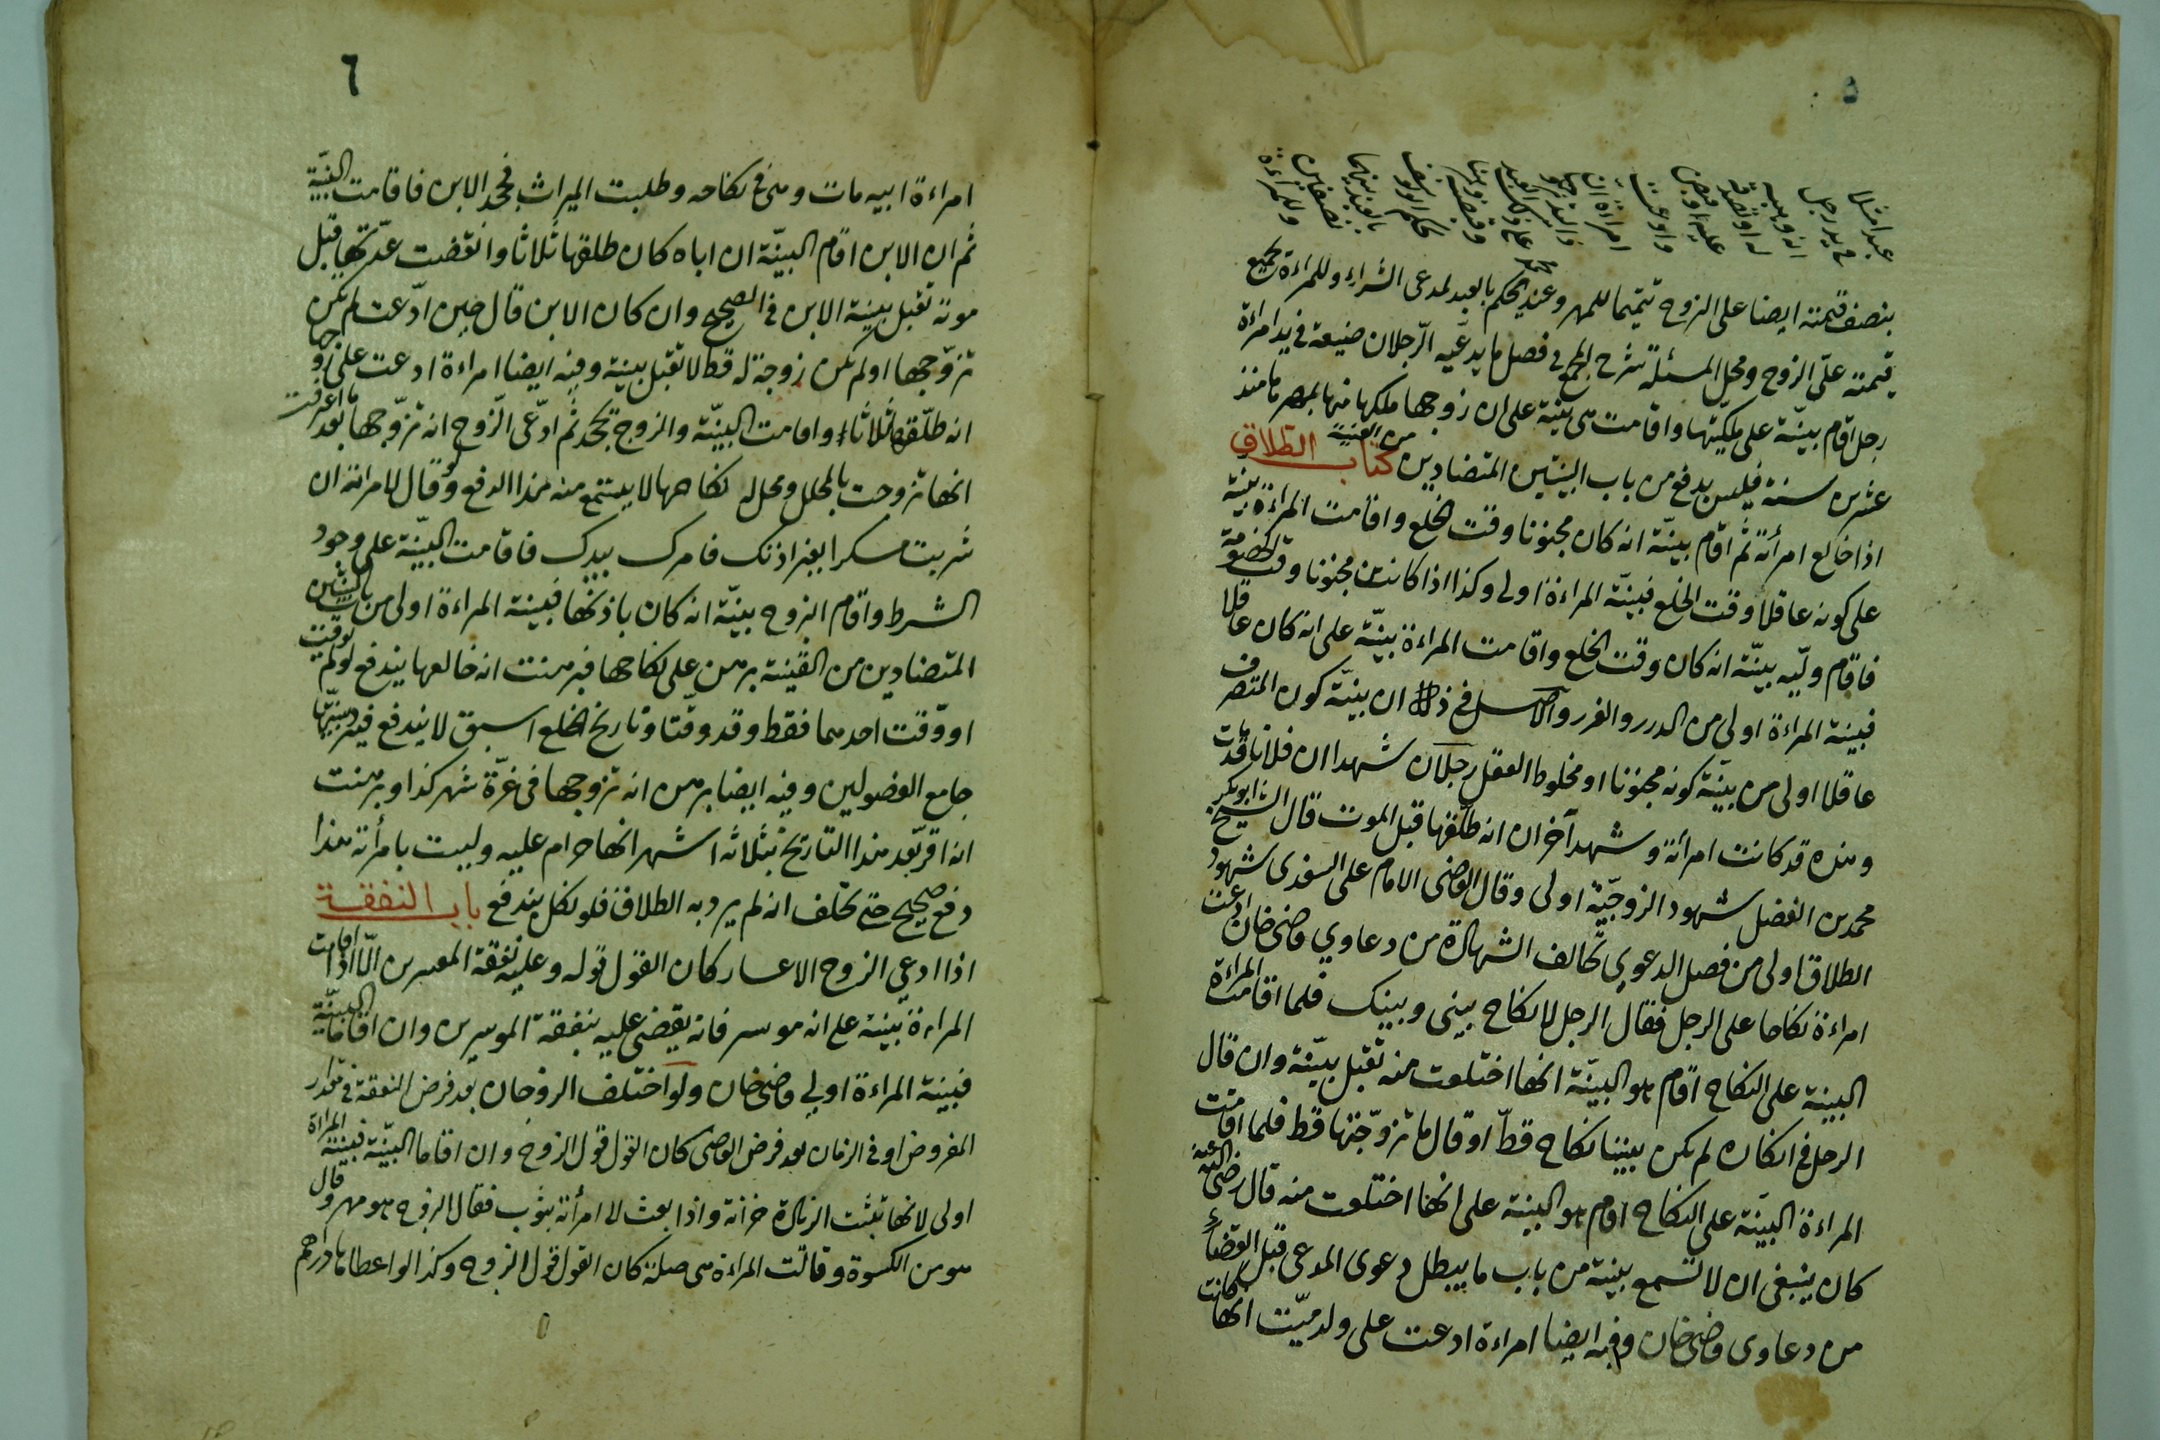 ٥
عبدا مثلا
في يد رجل
انه وهبه
له او تصدق
عليه وقبض
وادعت
امراءة ان
ذا اليد تزوجها
على ذلك العبد
وقبضته
يحكم ابو يوسف
بالعبد بينهما
نصفين
وللمراءة
بنصف قيمته ايضا على الزوج تتميما للمهر وعند محمد يحكم بالعبد لمدعى الشراء وللمراءة بجميع
قيمته على الزوج ومحل المسئلة شرح المجمع في فصل ما يدعيه الرجلان ضيعة في يد امراءة
رجل اقام بينة على ملكيتها واقامت هي بينة على ان زوجها ملكها منها بمهرها منذ
عشرين سنة فليس يدفع من باب البينتين المتضادين من القنية كتاب الطلاق
اذا خالع امرأته ثم اقام بينة انه كان مجنونا وقت الخلع واقامت المراءة بينة
على كونه عاقلا وقت الخلع فبينة المراءة اولى وكذا اذا كان مجنونا وقت الخصومة
فاقام وليه بينة انه كان وقت الخلع واقامت المراءة بينة على انه كان عاقلا
فبينة المراءة اولى من الدرر والغرر والاصل في ذلك ان بينة كون المتصرف
عاقلا اولى من بينة كونه مجنونا او مخلوط العقل رجلان شهدا ان فلانا مات
وهذه قد كانت امرأته وشهد آخران انه طلقها قبل الموت قال الشيخ ابو بكر
محمد بن الفضل شهود الزوجية اولى وقال القاضى الامام على السغدى شهود
الطلاق اولى من فصل الدعوى تخالف الشهادة من دعاوي قاضى خان ادعت
امراءة نكاحا على الرجل فقال الرجل لا نكاح بيني وبينك فلما اقامت المراءة
البينة على النكاح اقام هو البينة انها اختلعت منه تقبل بينة وان قال
الرجل في انكاره لم يكن بيننا نكاح قط او قال ما تزوجتها قط فلما اقامت
المراءة البينة على النكاح اقام هو البينة على انها اختلعت منه قال رضى الله عنه
كان ينبغى ان لا تسمع بينة من باب ما يبطل دعوى المدعى قبل القضاء
من دعاوى قاضى خان وفيه ايضا امراءة ادعت على ولد ميت انها كانت
٦
امراءة ابيه مات وهي في نكاحه وطلبت الميراث فجحد الابن فاقامت البينة
ثم ان الابن اقام البينة ان اباه كان طلقها ثلاثا وانقضت عدتها قبل
موته تقبل بينة الابن في الصحيح وان كان الابن قال حين ادعت لم يكن
تزوجها او لم تكن زوجة له قط لا تقبل بينة وفيه ايضا امراءة ادعت على زوجها
انه طلقها ثلاثا واقامت البينة والزوج يجحد ثم ادعى الزوج انه تزوجها بعد ما اعرفت
انها تزوجت بالمحلل ومحل له نكاحها لا يستمع منه هذا الدفع وقال لامرأته ان
شربت مسكرا بغير اذنك فامرك بيدك فاقامت البينة على وجود
الشرط واقام الزوج بينة انه كان باذنها فبينة المراءة اولى من باب البينتين
المتضادين من القنية برهن على نكاحها فبرهنت انه خالعها يندفع لو لم توقت
او وقت احدهما فقط وقد وقتا وتاريخ الخلع اسبق لا يندفع
جامع الفصولين وفيه ايضا برهن انه تزوجها في غرة شهر كذا وبرهنت
انه اقر بعد هذا التاريخ بثلاثة اشهر انها حرام عليه وليست بامرأته هذا
دفع صحيح حتى يحلف انه لم يرد به الطلاق فلو نكل يندفع باب النفقة
اذا ادعى الزوج الاعسار كان القول قوله وعليه نفقة المعسرين الا اذا اقامت
المراءة بينة على انه موسر فانه يقضى عليه بنفقة الموسرين وان اقاما البينة
فبينة المراءة اولى قاضى خان ولو اختلف الزوجان بعد فرض النفقة في مقدار
المفروض او في الزمان بعد فرض القاضى كان القول قول الزوج وان اقاما البينة فبينة المراة
اولى لانها تثبت الزيادة خزانة واذا بعث لا امرأته بثوب فقال الزوج هو مهر وقال
هو من الكسوة وقالت المراءة هي صلة كان القول قول الزوج وكذا لو اعطاها دراهم